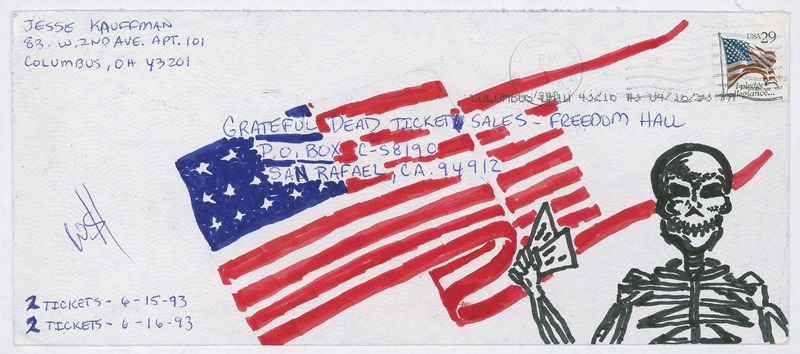 JESSE KAUFFMAN
83. W. 2ND AVE. APT. 101
COLUMBUS, OH 43201
USA 29
I pledge
allegiance...
COLUMBUS, OH 43216
GRATEFUL DEAD TICKET SALES - FREEDOM HALL
P.O. BOX C-S8190
SAN RAFAEL, CA. 94912
2 TICKETS - 6-15-93
2 TICKETS - 6-16-93